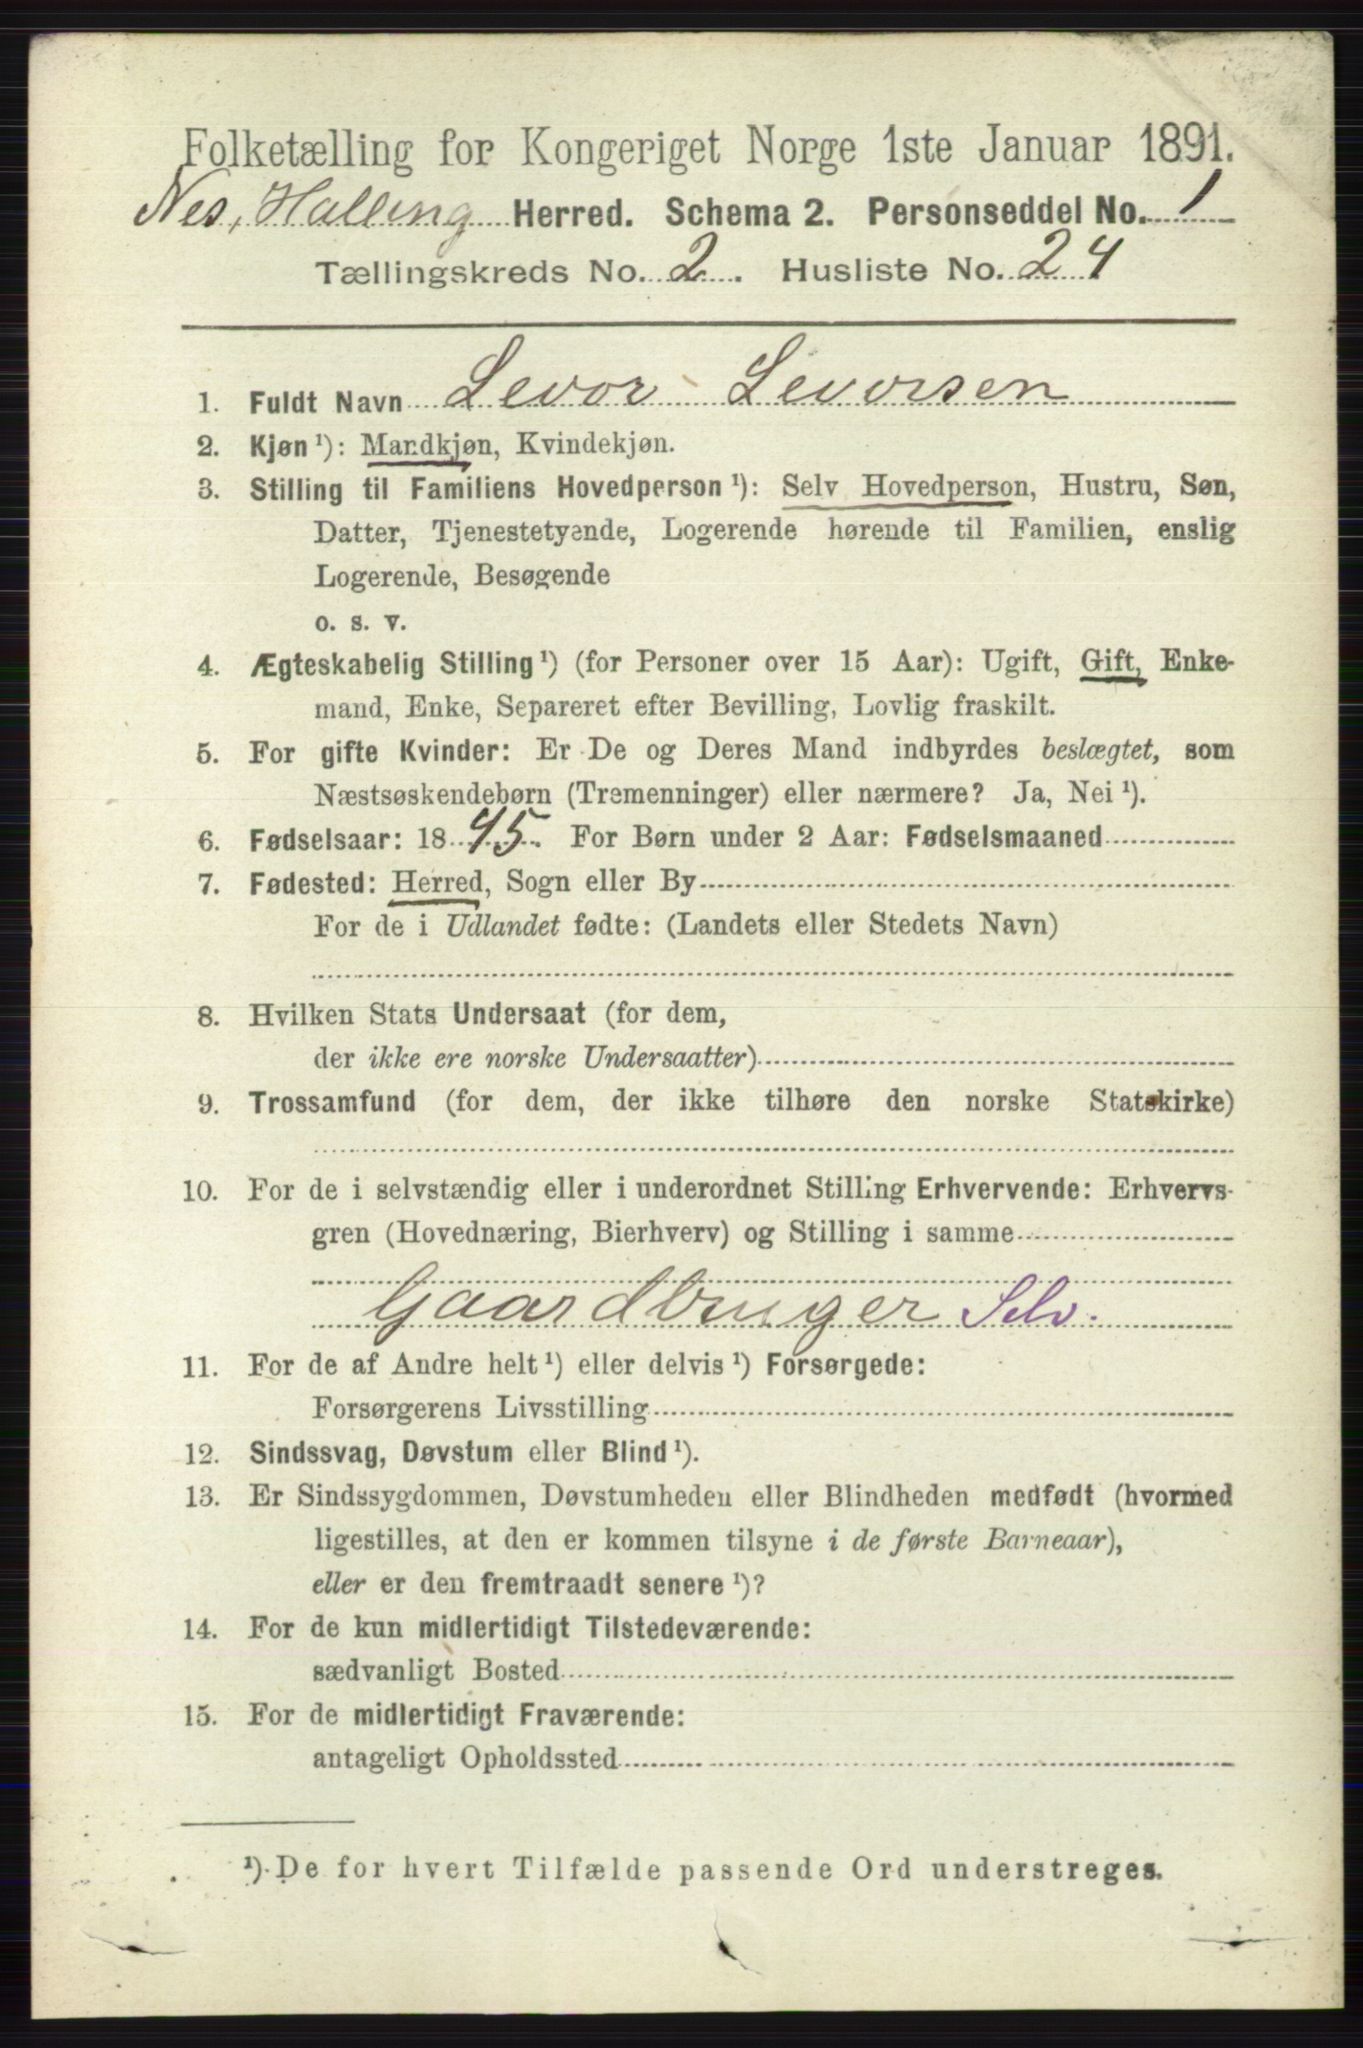 Folketælling for Kongeriget Norge 1ste Januar 1891.
Nes, Halling Herred. Schema 2. Personseddel No. 1
Tællingskreds No. 2. Husliste No. 24
1. Fuldt Navn Levor Levorsen
2. Kjøn ¹): Mandkjøn, Kvindekjøn.
3. Stilling til Familiens Hovedperson ¹): Selv Hovedperson, Hustru, Søn,
Datter, Tjenestetyende, Logerende hørende til Familien, enslig
Logerende, Besøgende
o. s. v.
4. Ægteskabelig Stilling ¹) (for Personer over 15 Aar): Ugift, Gift, Enke-
mand, Enke, Separeret efter Bevilling, Lovlig fraskilt.
5. For gifte Kvinder: Er De og Deres Mand indbyrdes beslægtet, som
Næstsøskendebørn (Tremenninger) eller nærmere? Ja, Nei ¹).
6. Fødselsaar: 1845. For Børn under 2 Aar: Fødselsmaaned
7. Fødested: Herred, Sogn eller By
For de i Udlandet fødte: (Landets eller Stedets Navn)
8. Hvilken Stats Undersaat (for dem,
der ikke ere norske Undersaatter)
9. Trossamfund (for dem, der ikke tilhøre den norske Statskirke)
10. For de i selvstændig eller i underordnet Stilling Erhvervende: Erhvervs-
gren (Hovednæring, Bierhverv) og Stilling i samme
Gaardbruger Selv.
11. For de af Andre helt ¹) eller delvis ¹) Forsørgede:
Forsørgerens Livsstilling
12. Sindssvag, Døvstum eller Blind ¹).
13. Er Sindssygdommen, Døvstumheden eller Blindheden medfødt (hvormed
ligestilles, at den er kommen tilsyne i de første Barneaar),
eller er den fremtraadt senere ¹)?
14. For de kun midlertidigt Tilstedeværende:
sædvanligt Bosted
15. For de midlertidigt Fraværende:
antageligt Opholdssted
¹) De for hvert Tilfælde passende Ord understreges.